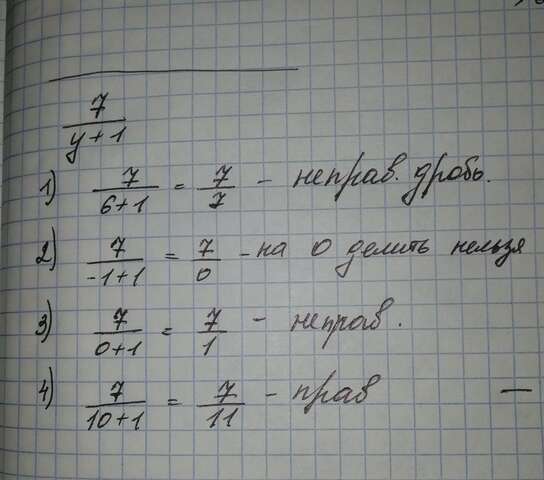 7/(y+1)
1) 7/(6+1) = 7/7 - неправ. дробь.
2) 7/(-1+1) = 7/0 - на 0 делить нельзя
3) 7/(0+1) = 7/1 - неправ.
4) 7/(10+1) = 7/11 - прав